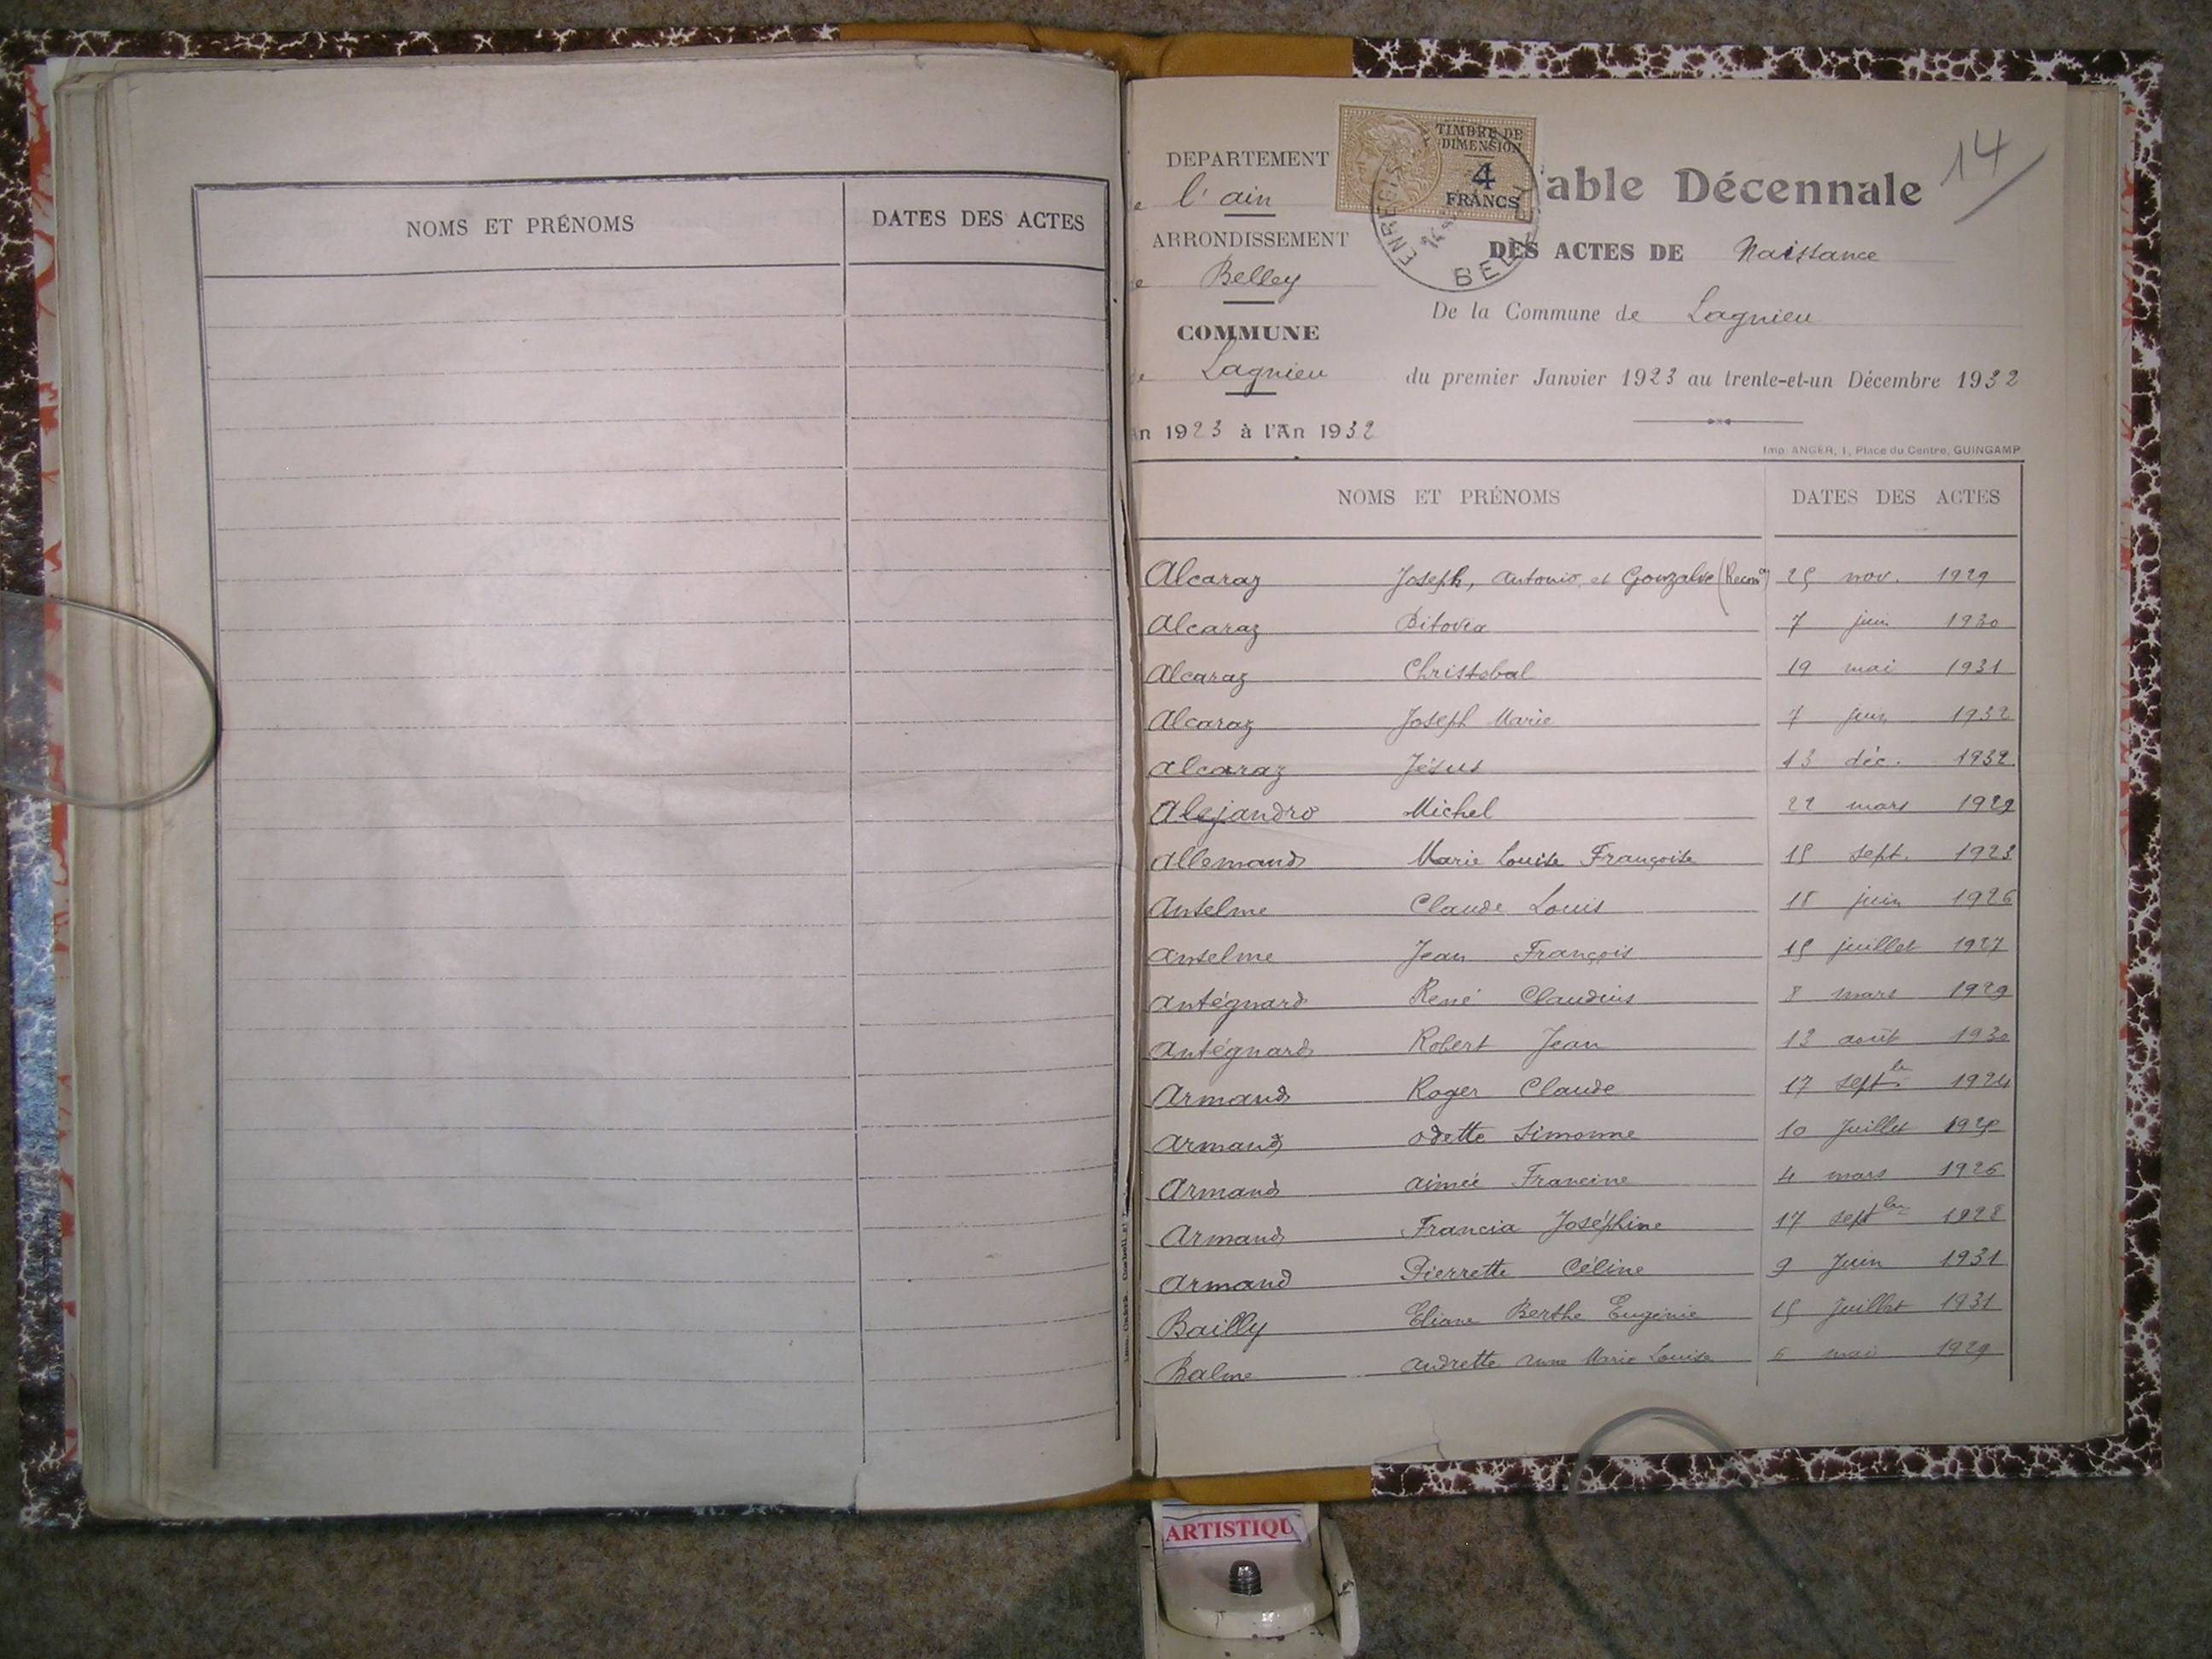 NOMS ET PRÉNOMS
DATES DES ACTES
DEPARTEMENT
e l'ain
ARRONDISSEMENT
e Belley
COMMUNE
e Lagnieu
An 1923 à l'An 1932
TIMBRE DE
DIMENSION
4
FRANCS
able Décennale
14
DES ACTES DE Naissance
De la Commune de Lagnieu
du premier Janvier 1923 au trente-et-un Décembre 1932
Imp. ANGER, 1, Place du Centre, GUINGAMP
NOMS ET PRÉNOMS
DATES DES ACTES
Alcaraz Joseph, Antonio et Gonzalve 25 nov. 1929
Alcaraz 7 juin 1930
Alcaraz Christobal 19 mai 1931
Alcaraz Joseph Marie 7 juin 1932
Alcaraz Jésus 13 déc. 1932
Alejandro Michel 22 mars 1929
Allemand Marie Louise Françoise 15 sept. 1923
Anselme Claude Louis juin 1926
Anselme Jean François 15 juillet 1927
Antégnard René Claudius 8 mars 1929
Antégnard Robert Jean 13 août 1930
Armand Roger Claude 17 septbre 1924
Armand Odette Simonne 10 Juillet
Armand Aimée Francine 4 mars 1926
Armand Francia Joséphine 17 septbre 1928
Armand Pierrette Céline 9 Juin 1931
Bailly Eliane Berthe Eugénie 15 Juillet 1931
Balme Andrette Anne Marie Louise mai 1929
ARTISTIQU